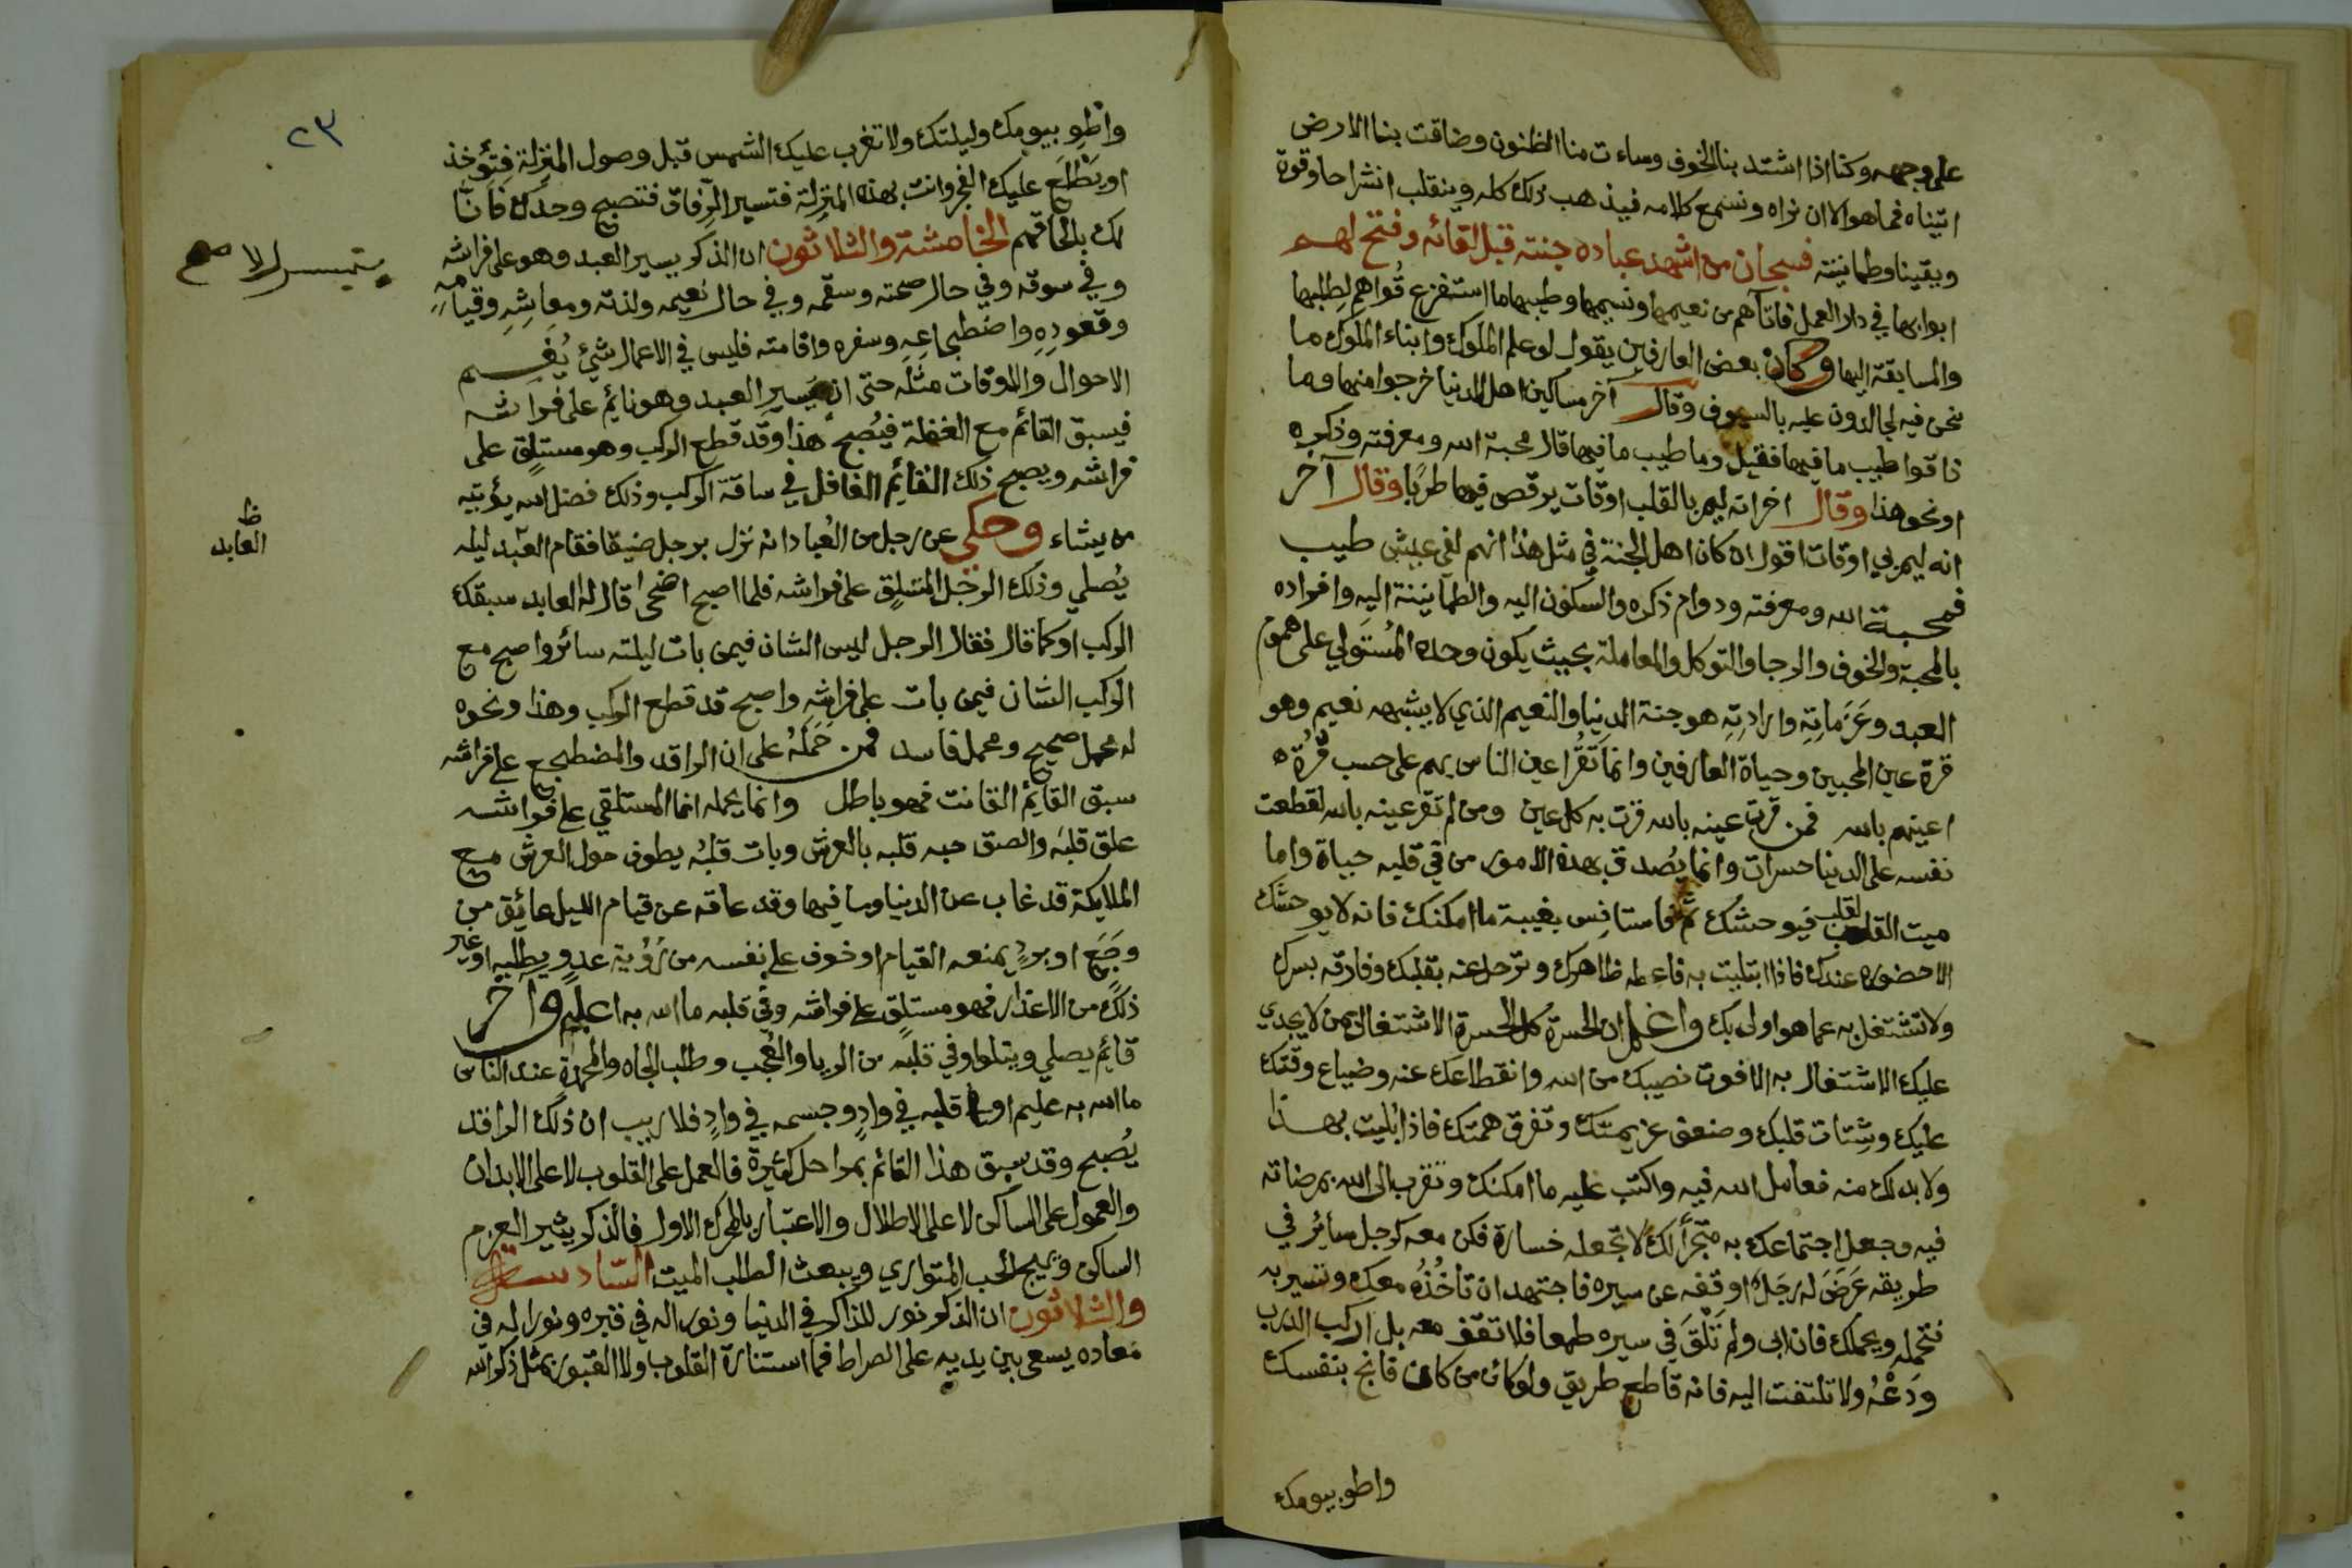 على وجهه وكنا اذا اشتد بنا الخوف وساءت منا الظنون وضاقت بنا الارض
اتيناه فما هو الا ان نراه ونسمع كلامه فيذهب ذلك كله وينقلب انشراحا وقوة
ويقينا وطمانينة فسبحان من اشهد عباده جنته قبل لقائه وفتح لهم
ابوابها في دار العمل فاتاهم من نعيمها ونسيمها وطيبها ما استفرغ قُواهم لطلبها
والمسابقة اليها وكان بعض العارفين يقول لو علم الملوك وابناء الملوك ما
نحن فيه لجالدونا عليه بالسيوف وقال آخر مساكين اهل الدنيا خرجوا منها وما
ذاقوا طيب ما فيها فقيل وما طيب ما فيها قال محبة الله ومعرفته وذكره
او نحو هذا وقال اخر انه ليمر بالقلب اوقات يرقص فيها طربًا وقال آخر
انه ليمر بي اوقات اقول ان كان اهل الجنة في مثل هذا انهم لفي عيش طيب
فمحبة الله ومعرفته ودوام ذكره والسكون اليه والطمانينة اليه وافراده
بالمحبة والخوف والرجا والتوكل والمعاملة بحيث يكون وحده المُستَولي على هموم
العبد وعَزَماتِهِ وارادتِهِ هو جنة الدنيا والنعيم الذي لا يشبهه نعيم وهو
قرة عين المحبين وحياة العارفين وانما تَقُرّ اعين الناس بهم على حسب قُرّة
اعينهم بالله فمن قرت عينه بالله قرت به كل عين ومن لم تقر عينه بالله تقطعت
نفسه على الدنيا حسرات وانما يُصدق بهذه الامور من في قلبه حياة واما
ميت القلب فيوحشك ثم فاستانِس بغيبة ما امكنك فانه لا يوحشك
الا حضوره عندك فاذا ابتليت به فاعطه ظاهرك وترحل عنه بقلبك وفارقه بسرك
ولا تشتغل به عما هو اولى بك واعلم ان الحسرة كل الحسرة الاشتغال بمن لا يجدي
عليك الاشتغال به الا فوت نصيبك من الله وانقطاعك عنه وضياع وقتك
عليك وشِتات قلبك وضعف عزيمتك وتفرق همتك فاذا بُليت بهذا
ولا بد لك منه فعامل الله فيه واكتب عليه ما امكنك وتقرب الى الله بمرضاته
فيه وجعل اجتماعك به متجرًا لك لا تجعله خسارة فكن معه كرجل سائر في
طريقه عَرَضَ له رَجل اوقفه عن سيره فاجتهد ان تاخُذُه معك وتسير به
فتحمله ويحملك فان ابى ولم تَلْقَ في سيره طمعا فلا تقف معه بل اركب الدرب
ودَعْهُ ولا تلتفت اليه فانه قاطع طريق ولو كان من كان فانج بنفسك
واطو بيومك
٢٣
واطوِ بيومك وليلتك ولا تغرب عليك الشمس قبل وصول المنزلة فتؤخذ
او يَطْلَعَ عليك الفجر وانت بهذه المنزلة فتسير الرِّفاق فتصبح وحدك فانّا
لك بلحاقهم الخامسة والثلاثون ان الذكر يسير العبد وهو على فراشه
وفي سوقه وفي حال صحته وسقمه وفي حال نعيمه ولذته ومعاشِهِ وقيامِهِ
وقعودِهِ واضطجاعِهِ وسفره واقامته فليس في الاعمال شيئ يُعِم
الاحوال والاوقات مثله حتى انه يسير العبد وهو نائم على فراشه
فيسبق القائم مع الغفلة فيُصبح هذا وقد قطع الركب وهو مستلقٍ على
فراشه ويصبح ذلك القائم الغافل في ساقة الركب وذلك فضل الله يؤتيه
من يشاء وحكي عن رجل من العُباد انه نزل برجل ضيفا فقام العبد ليله
ظ
العابد
يُصلي وذلك الرجل المستلقٍ على فراشه فلما اصبح اضحى قال له العابد سبقك
الركب او كما قال فقال الرجل ليس الشان فيمن بات ليلته سائر واصبح مع
الركب الشان فيمن بات على فراشه واصبح قد قطع الركب وهذا ونحوه
له محمل صحيح ومحمل فاسد فمن حَمَلَهُ على ان الراقد والمضطجع على فراشه
سبق القايم القانت فهو باطل وانما يحمله انما المستلقي على فراشه
علق قلبَه والصق حبه قلبه بالعرش وبات قلبُه يطوف حول العرش مع
الملايكة قد غاب عن الدنيا وما فيها وقد عاقه عن قيام الليل عائق من
وَجَعٍ او بردٍ يمنعه القيام او خوف على نفسه من رُؤية عدوٍ يطلبه او غير
ذلك من الاعذار فهو مستلقٍ على فراشه وفي قلبه ما الله به اعليم وآخر
قائم يصلي ويتلوا وفي قلبه من الريا والعُجب وطلب الجاه والمحمدة عند الناس
ما الله به عليم او قلبه في وادٍ وجسمه في وادٍ فلا ريب ان ذلك الراقد
يُصبح وقد سبق هذا القائم بمراحل كثيرة فالعمل على القلوب لا على الابدان
والعمول على الساكن لا على الاطلال والاعتبار بالمحرك الاول فالذكر يثير العزم
الساكن ويهيج الحب المتواري ويبعث الطلب الميت السادسة
والثلاثون ان الذكر نور للذاكر في الدنيا ونور اله في قبره ونور اله في
معاده يسعى بين يديه على الصراط فما استنارة القلوب ولا القبور بمثل ذكر الله